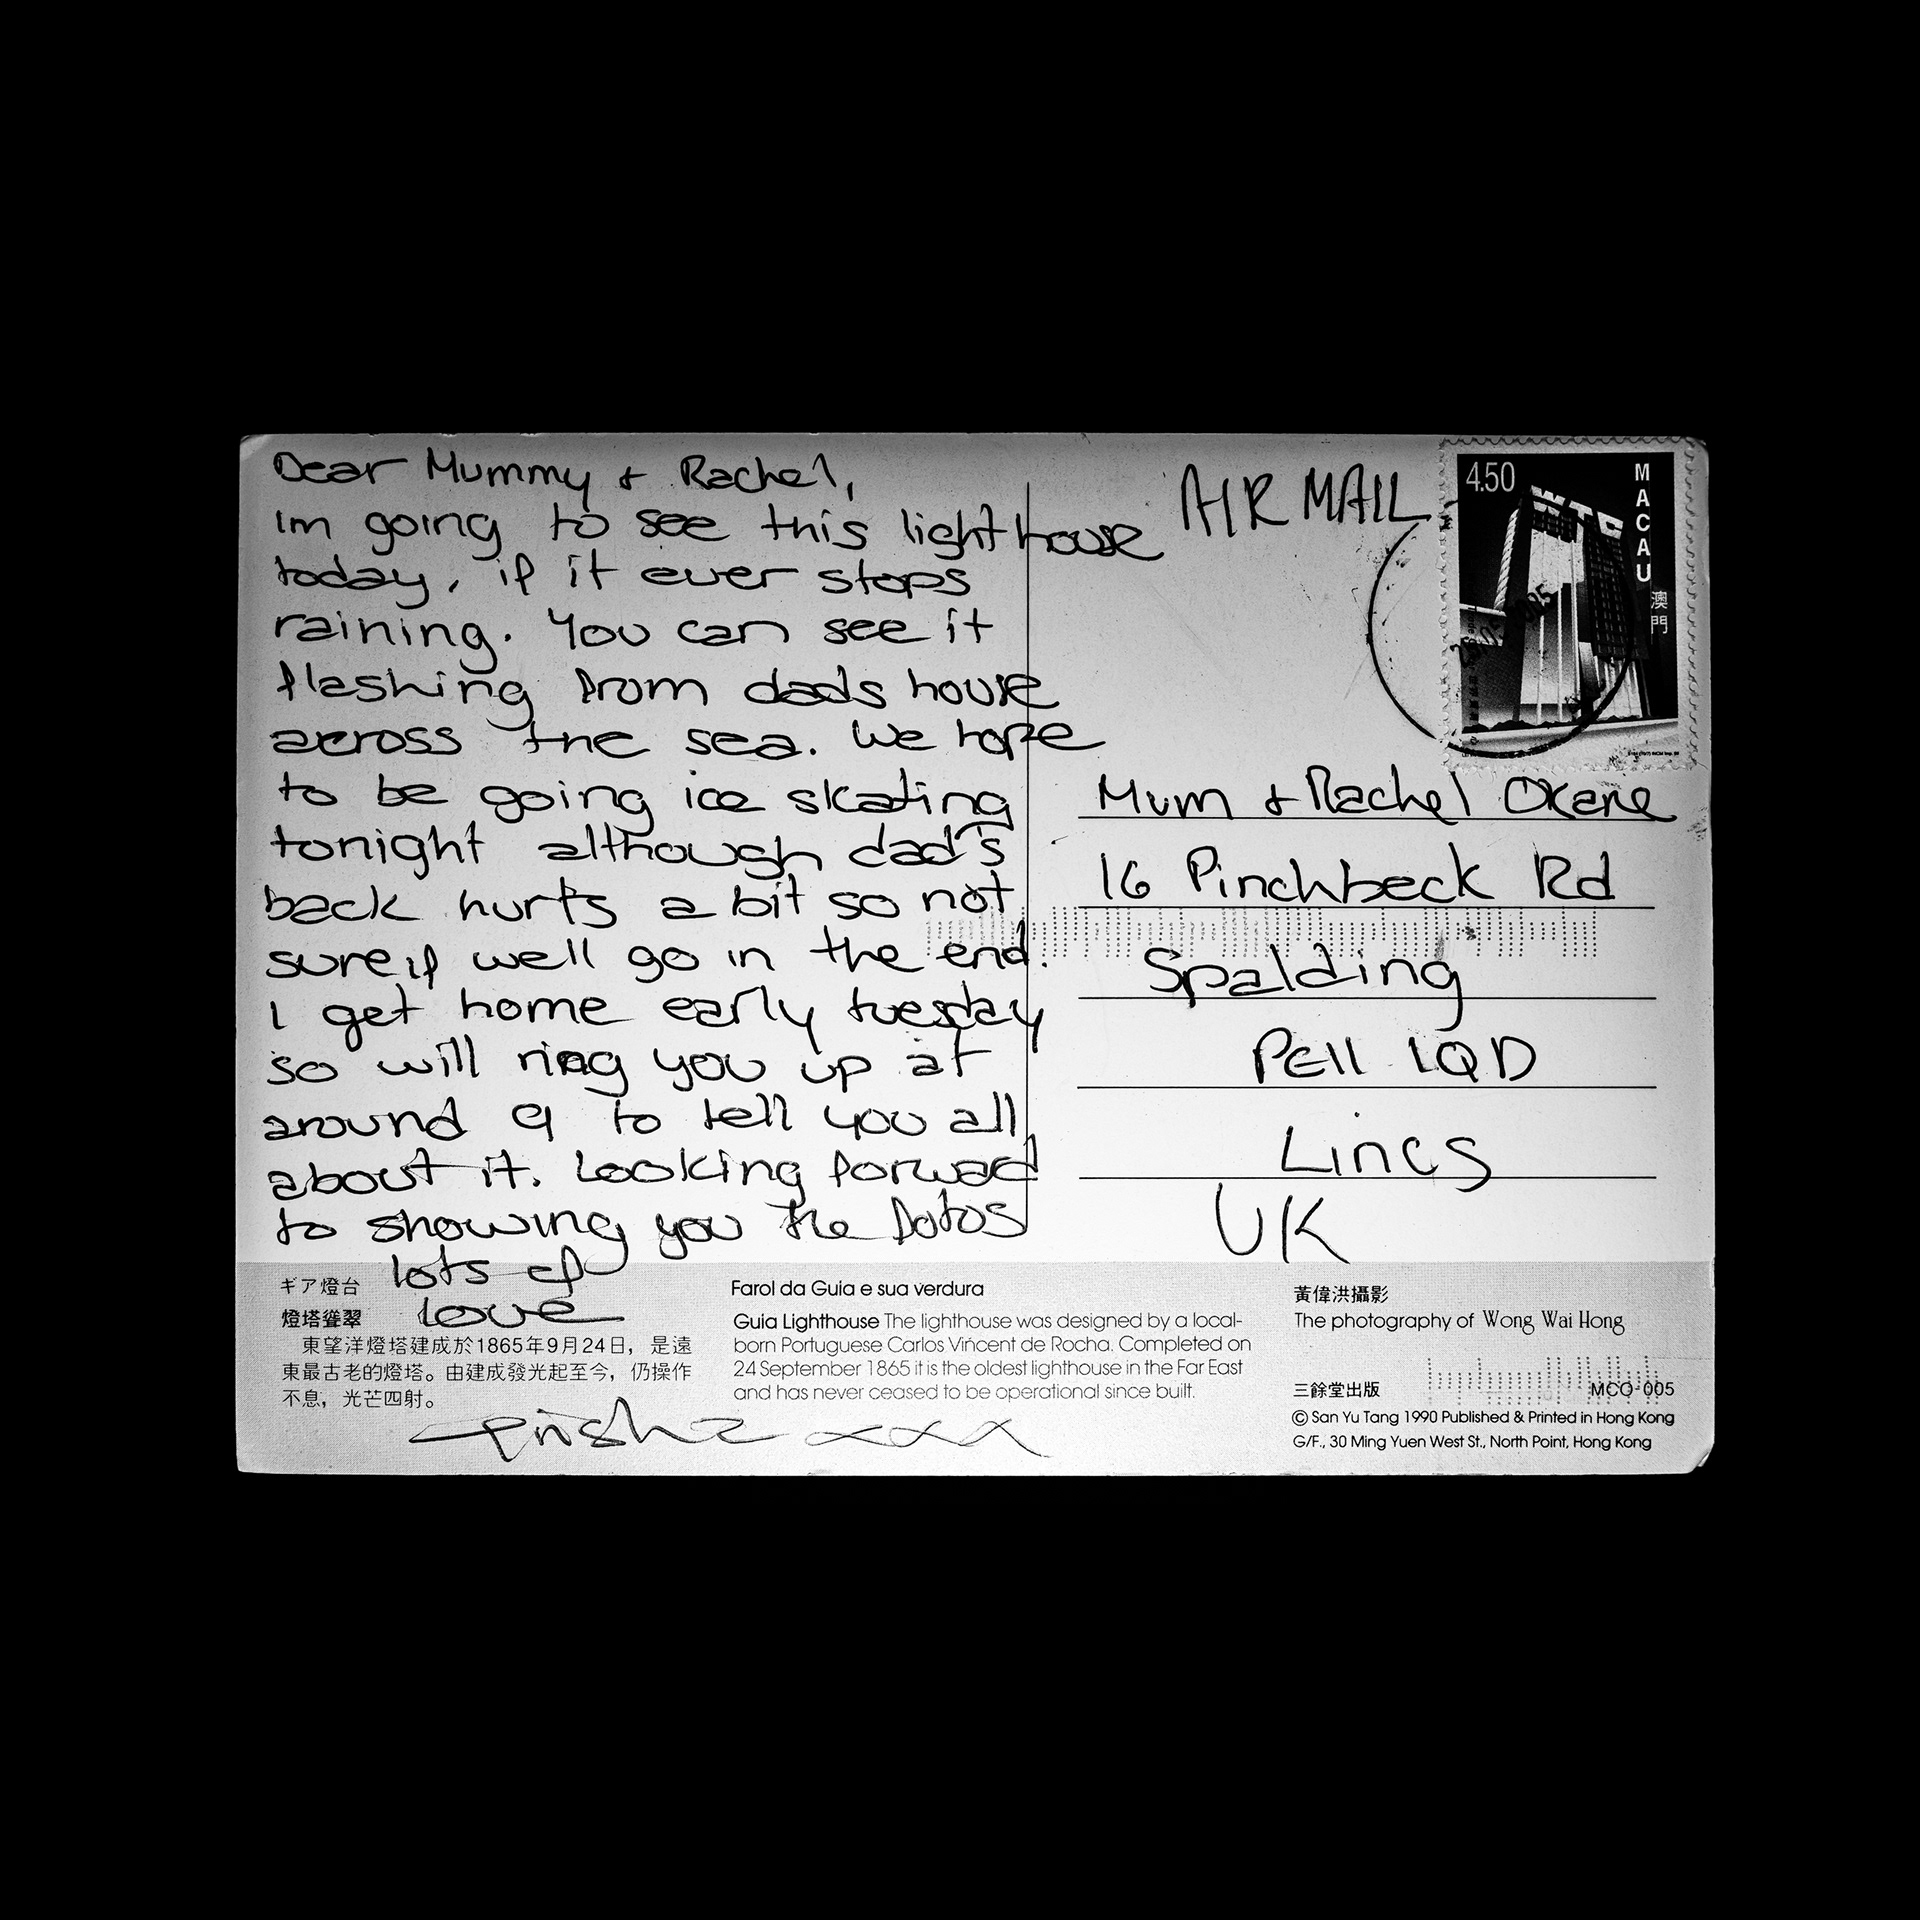 Dear Mummy + Rachel,
Im going to see this lighthouse
today, if it ever stops
raining. You can see it
flashing from dads house
across the sea. We hope
to be going ice skating
tonight although dad's
back hurts a bit so not
sure if we'll go in the end.
I get home early tuesday
so will ring you up at
around 9 to tell you all
about it. Looking forward
to showing you the fotos
lots of
love
Trisha xxx
AIR MAIL
4.50
MACAU
澳門
WTC
Mum + Rachel OKane
16 Pinchbeck Rd
Spalding
PE11 1QD
Lincs
UK
ギア燈台
燈塔聳翠
東望洋燈塔建成於1865年9月24日，是遠
東最古老的燈塔。由建成發光起至今，仍操作
不息，光芒四射。
Farol da Guia e sua verdura
Guia Lighthouse The lighthouse was designed by a local-
born Portuguese Carlos Vincent de Rocha. Completed on
24 September 1865 it is the oldest lighthouse in the Far East
and has never ceased to be operational since built.
黃偉洪攝影
The photography of Wong Wai Hong
三餘堂出版
MCO-005
© San Yu Tang 1990 Published & Printed in Hong Kong
G/F., 30 Ming Yuen West St., North Point, Hong Kong